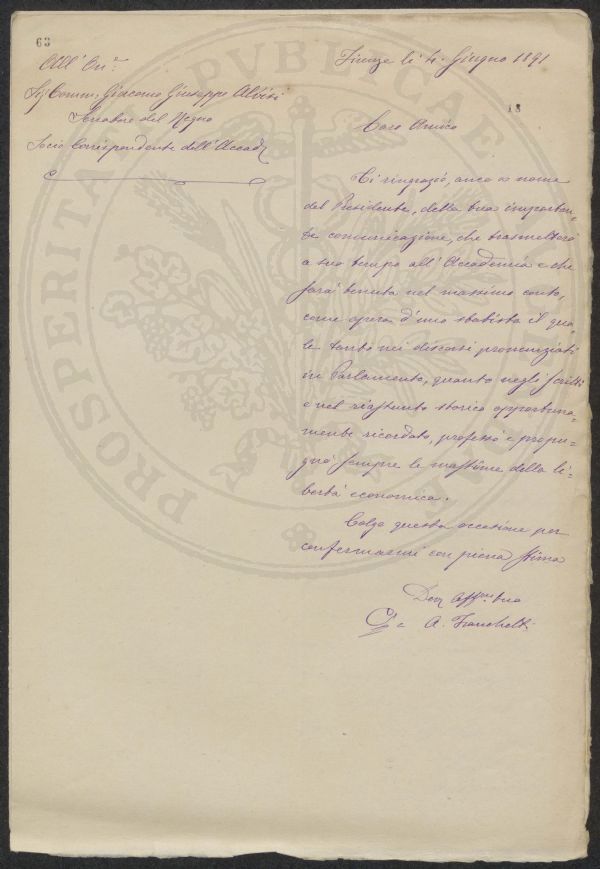 63
All' On.e
Sig. Comm. Giacomo Giuseppe Alvisi
Senatore del Regno
Socio Corrispondente dell'Accad.
Firenze li 4. Giugno 1891
18
Caro Amico
Ti ringrazio, anco a nome
del Presidente, della tua importan=
te comunicazione, che trasmetterò
a suo tempo all'Accademia e che
sarà tenuta nel massimo conto,
come opera d'uno statista il qua=
le tanto nei discorsi pronunziati
in Parlamento, quanto negli scritti
e nel riassunto storico opportuna=
mente ricordato, professò e propu=
gnò sempre le massime della li=
bertà economica.
Colgo questa occasione per
confermarmi con piena stima
Dev. Aff.mo tuo
A. Franchetti
PROSPERITATI PVBLICAE